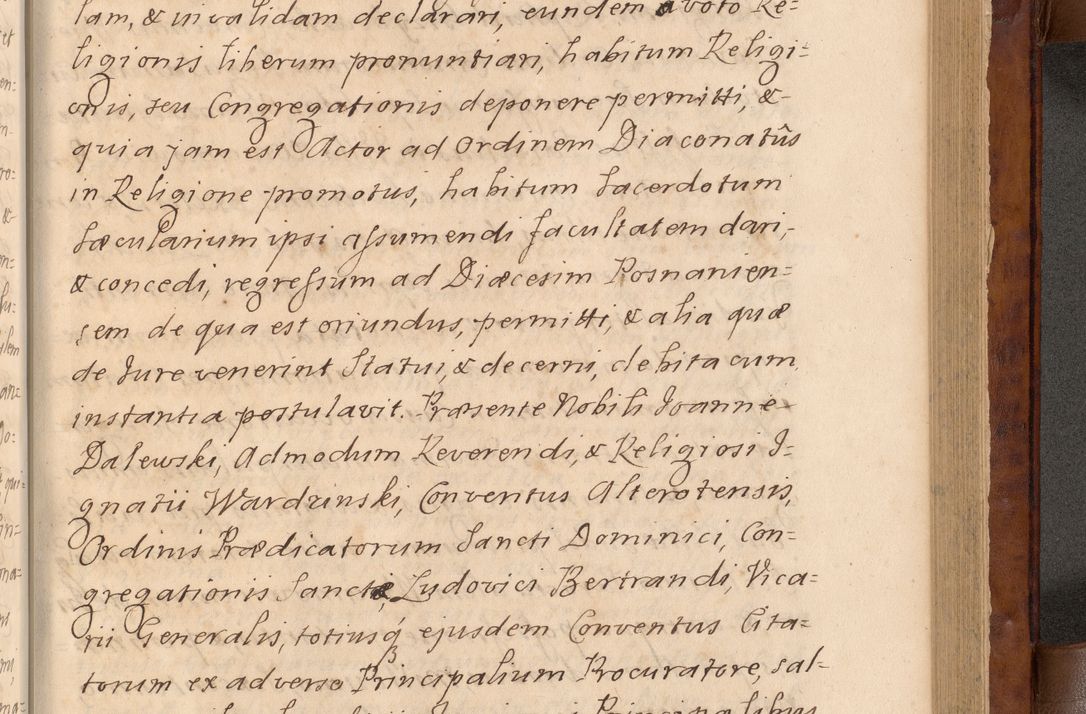 lam, & invalidam declarari, eundem a voto Re=
ligionis liberum pronuntiari, habitum Religi=
onis, seu Congregationis deponere permitti, &
quia jam est Actor ad Ordinem Diaconatûs
in Religione promotus, habitum Sacerdotum
Sæcularium ipsi assumendi facultatem dari,
& concedi, regressum ad Diæcesim Posnanien=
sem de qua est oriundus, permitti, & alia quæ
de Jure venerint Statui, & decerni, debita cum
instantia postulavit. Præsente Nobili Joanne
Dalewski, Admodum Reverendi, & Religiosi I=
gnatii Wardzinski, Conventus Alterotensis,
Ordinis Prædicatorum Sancti Dominici, Con=
gregationis Sancti Ludovici Bertrandi, Vica=
rii Generalis, totiusq́ ejusdem Conventus Cita=
torum ex adverso Principalium Procuratore, sal=